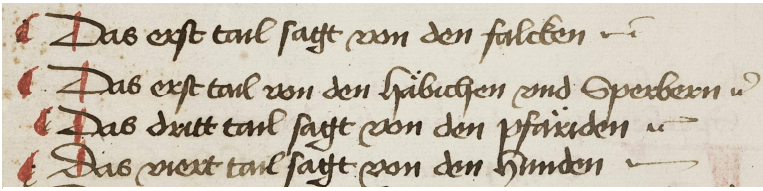 Das erst tail sagt von den falcken
Das erst tail von den häbichen vnd Sperbern
Das dritt tail sagt von den pfäriden
Das viert tail sagt von den Hunden